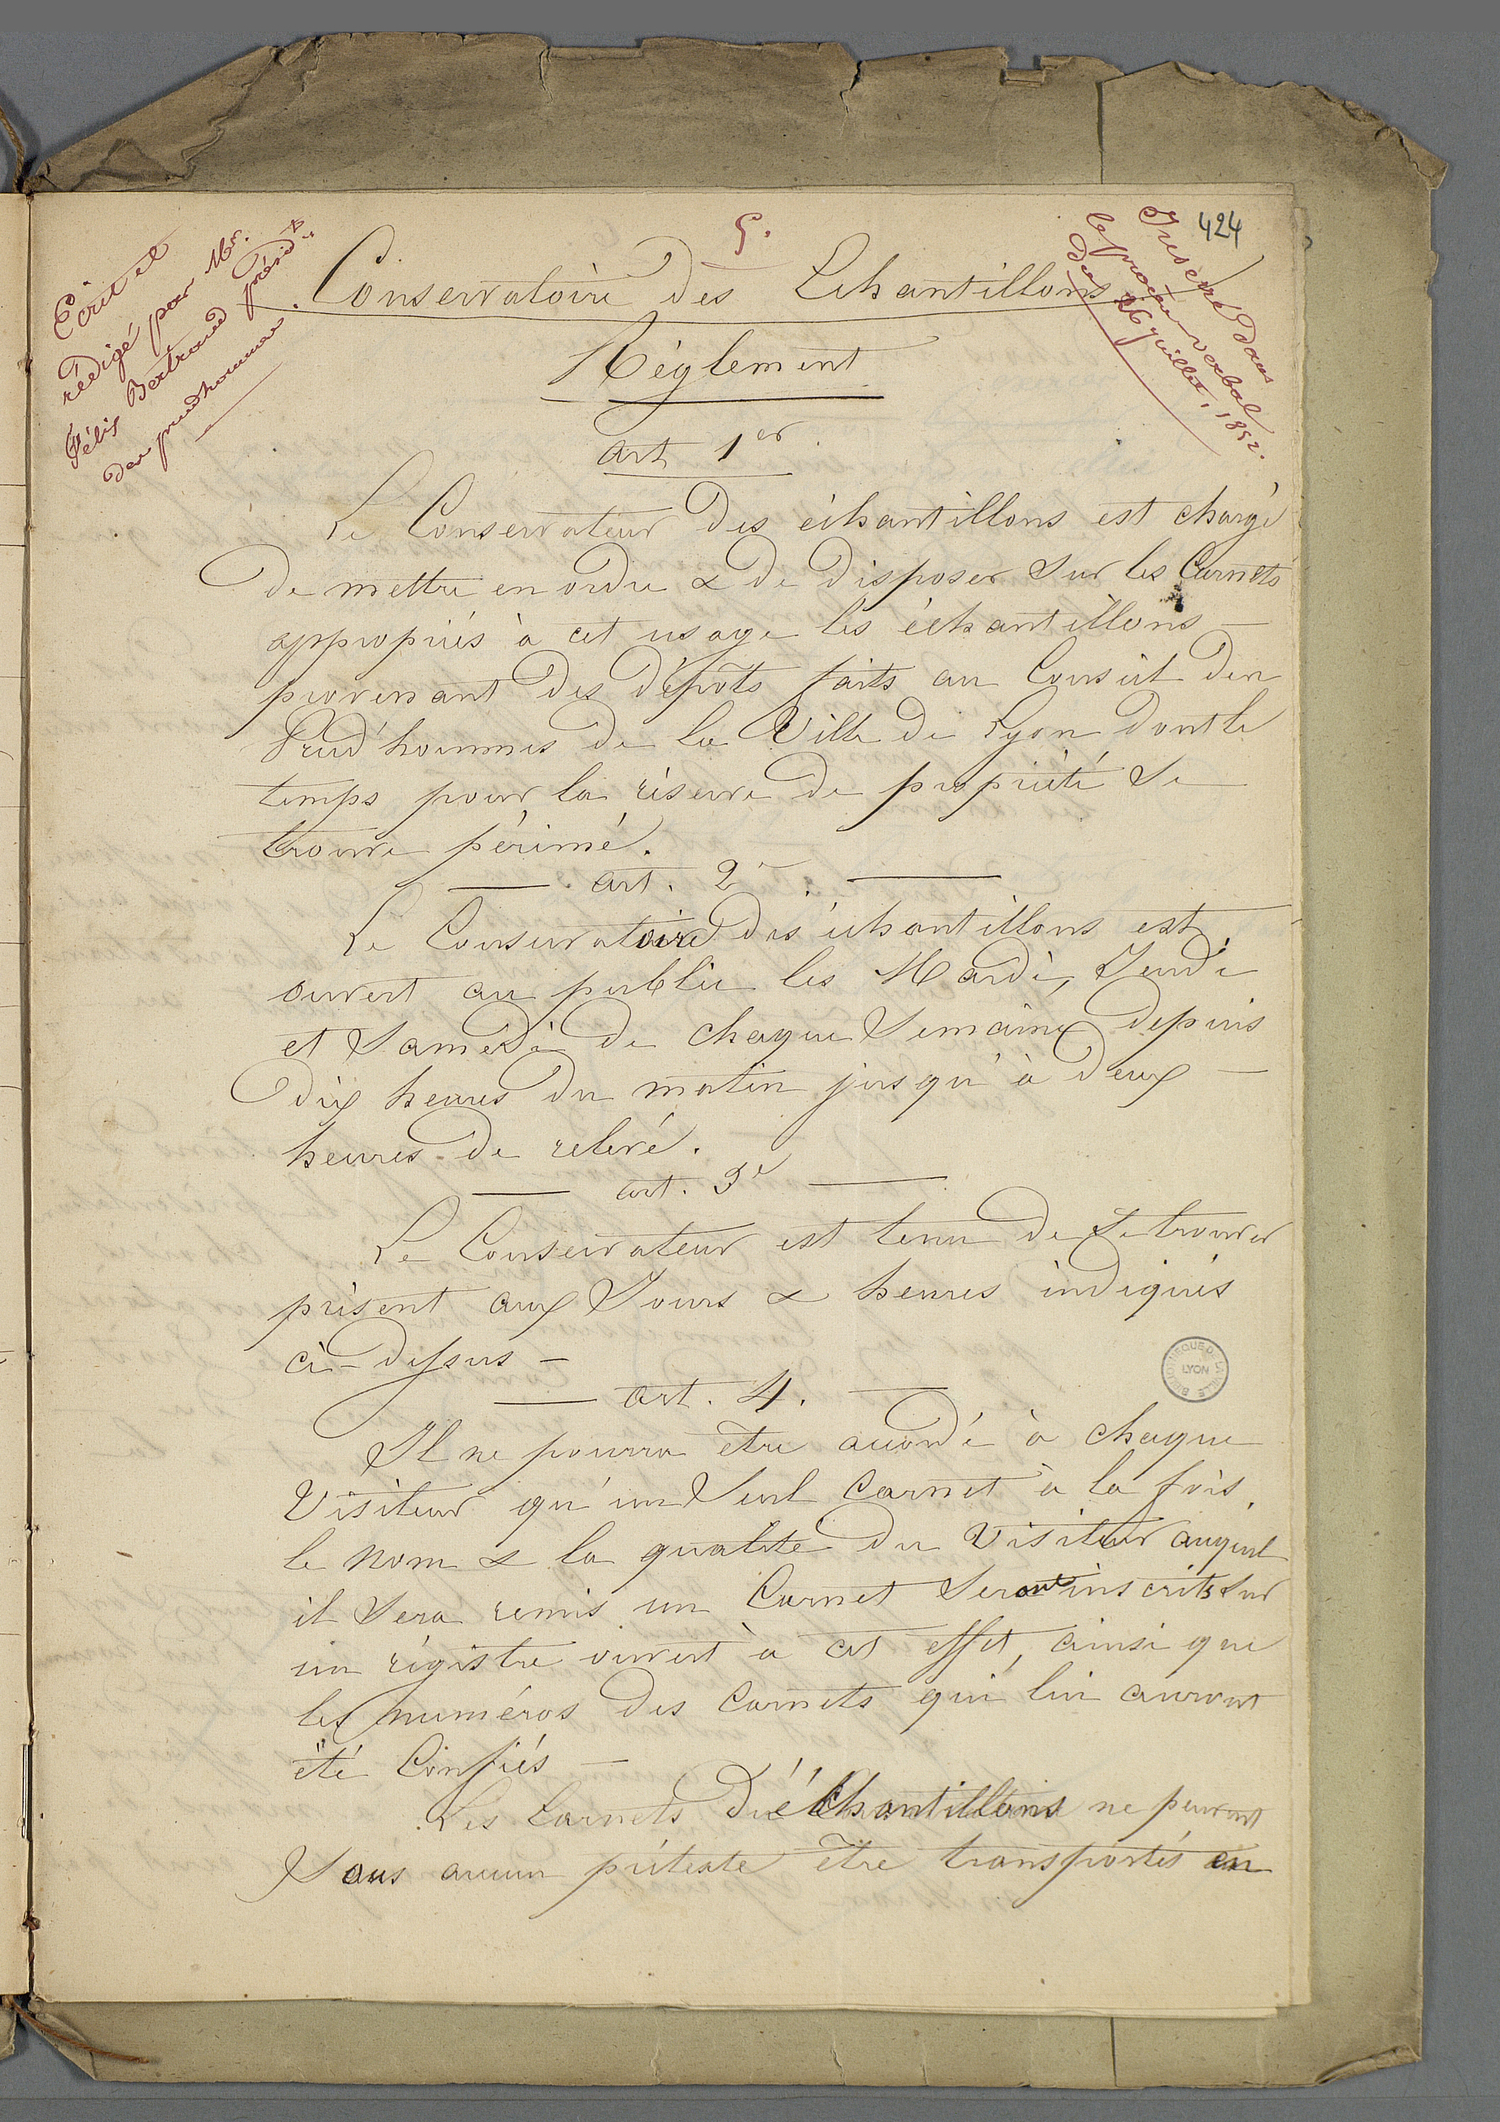 424
5.
Ecrit et
rédigé par Mr.
Félix Bertrand présidt
des prudhommes.
Inseré dans
le procès-verbal
du 26 juillet, 1852.
Conservatoire des Echantillons
Réglement
art. 1er
Le Conservateur des échantillons est chargé
de mettre en ordre & de disposer sur les Carnets
appropriés à cet usage les échantillons —
provenant des dépots faits au Conseil des
Prud'hommes de la Ville de Lyon dont le
temps pour la réserve de propriété se —
trouve périmé.
— art. 2e. —
Le Conservatoire des échantillons est
ouvert au public les Mardi, Jeudi
et Samedi de chaque Semaine depuis
dix heures du matin jusqu'à deux —
heures de relevé.
— art. 3e —
Le Conservateur est tenu de se trouver
présent aux Jours & heures indiqués
ci-dessus —
— art. 4. —
Il ne pourra être accordé à chaque
Visiteur qu'un Seul Carnet à la fois.
le nom & la qualité du Visiteur auquel
il Sera remis un Carnet Seront inscrits sur
un régistre ouvert à cet effet, ainsi que
les numéros des Carnets qui lui auront
été Confiés —
Les Carnets d'échantillons ne peuvent
Sous aucun prétexte être transportés en
BIBLIOTHEQUE DE LA VILLE
LYON